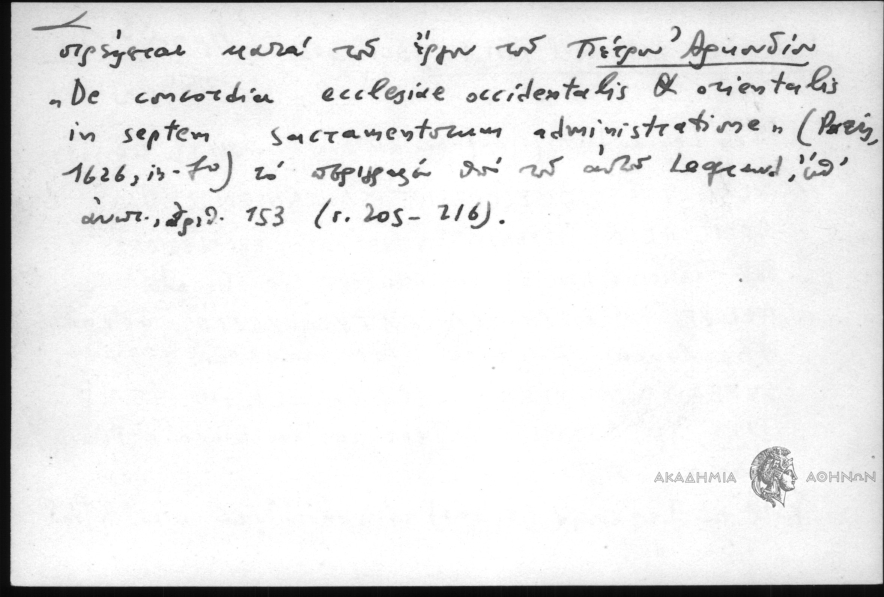 στρέφεται κατά τοῦ ἔργου τοῦ Πέτρου Ἀρκουδίου
„De concordia ecclesiae occidentalis & orientalis
in septem sacramentorum administratione„ (Paris,
1626, in-fo) τό περιγραφέν ὑπό τοῦ αὐτοῦ Legrand, ὑπ'
ἀριθ. 153 (σ. 205-216).
ΑΚΑΔΗΜΙΑ ΑΘΗΝΩΝ